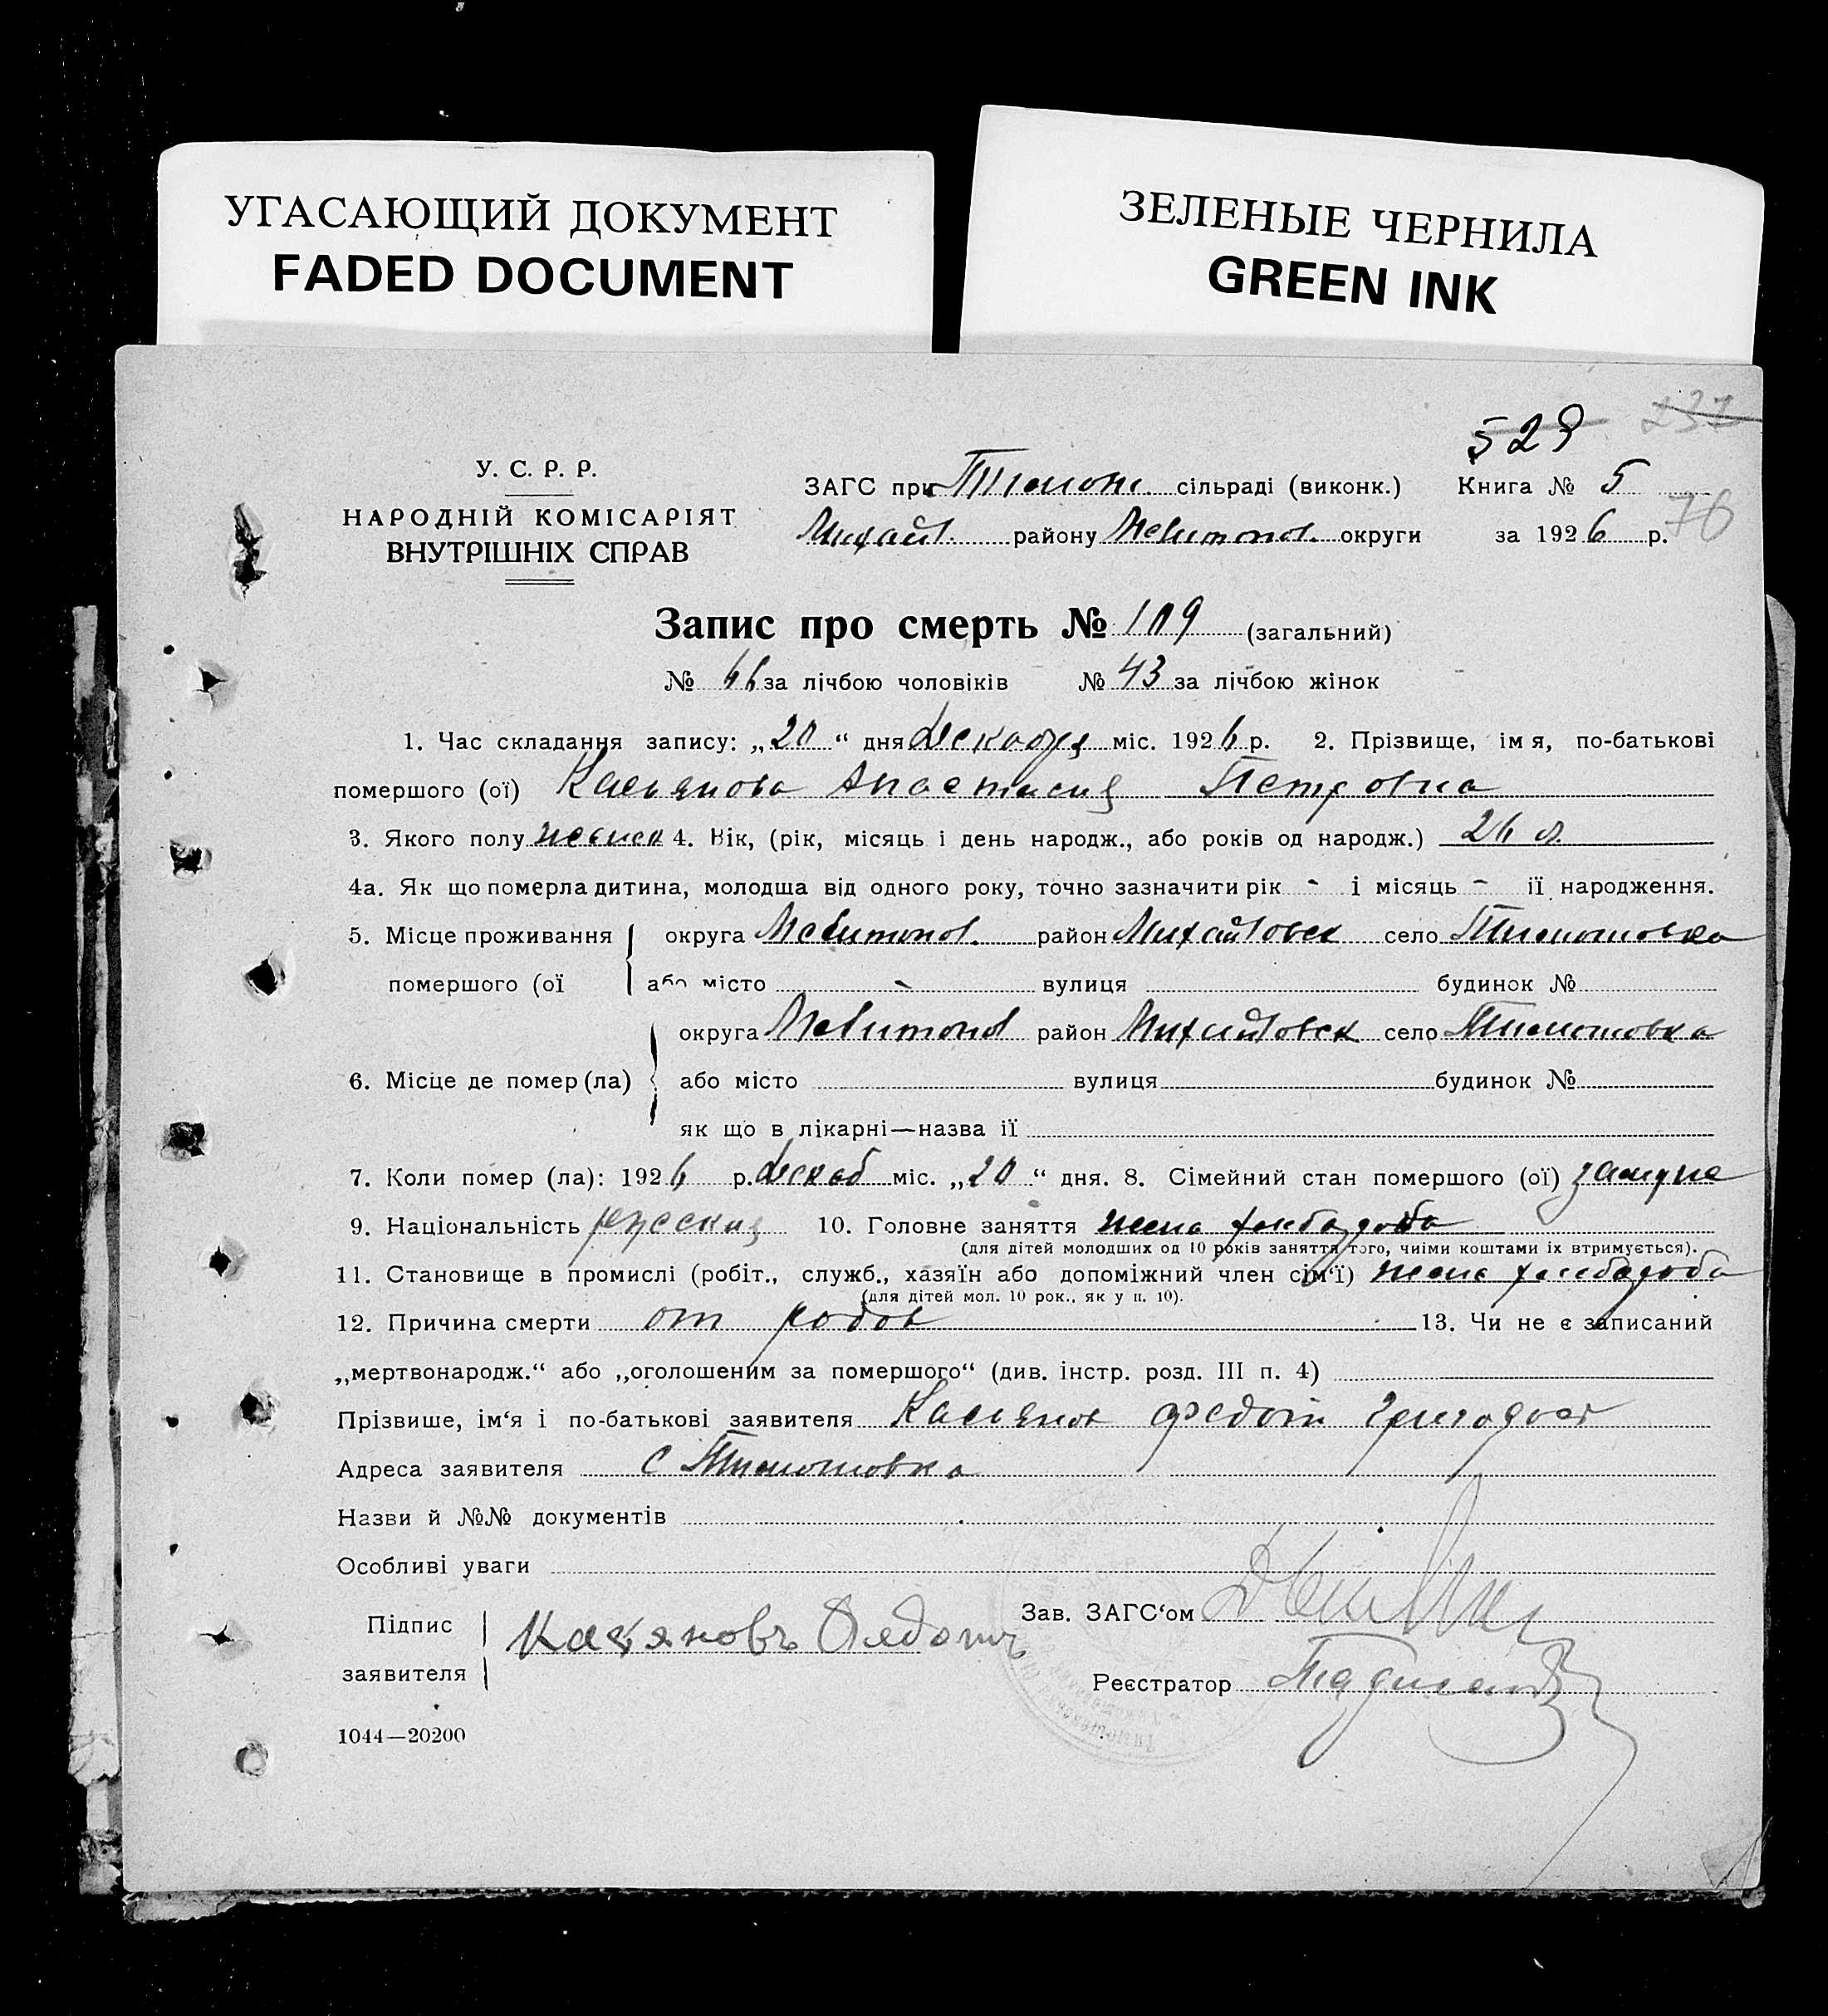 УГАСАЮЩИЙ ДОКУМЕНТ
FADED DOCUMENT
ЗЕЛЕНЫЕ ЧЕРНИЛА
GREEN INK
529 237
У. С. Р. Р.
НАРОДНІЙ КОМІСАРІЯТ
ВНУТРІШНІХ СПРАВ
ЗАГС при Тимош. сільраді (виконк.) Книга № 5
Михайл. району Мелитопол. округи за 1926 р. 76
Запис про смерть № 109 (загальний)
№ 66 за лічбою чоловіків № 43 за лічбою жінок
1. Час складання запису: „20“ дня Декабря міс. 1926 р. 2. Прізвище, імя, по-батькові
помершого (ої) Касьянова Анастасия Петровна
3. Якого полу женск 4. Вік, (рік, місяць і день народж., або років од народж.) 26 л.
4а. Як що померла дитина, молодша від одного року, точно зазначити рік - і місяць - її народження.
5. Місце проживання округа Мелитопол. район Михайловск село Тимошовка
помершого (ої або місто - вулиця будинок №
округа Мелитопол район Михайловск село Тимошовка
6. Місце де помер (ла) або місто вулиця будинок №
як що в лікарні—назва ії
7. Коли помер (ла): 1926 р. Декаб міс. „20“ дня. 8. Сімейний стан помершого (ої) замужне
9. Національність русская 10. Головне заняття жена хлебороба
(для дітей молодших од 10 років заняття того, чиїми коштами їх втримується).
11. Становище в промислі (робіт., служб., хазяїн або допоміжний член сім‘ї) жена хлебороба
(для дітей мол. 10 рок., як у п. 10).
12. Причина смерти от родов 13. Чи не є записаний
„мертвонародж.“ або „оголошеним за помершого“ (див. інстр. розд. III п. 4)
Прізвише, ім‘я і по-батькові заявителя Касьянов Федот Григорьев
Адреса заявителя с Тимошовка
Назви й №№ документів
Особливі уваги
Підпис
заявителя
Касяновъ Федотъ
Зав. ЗАГС‘ом
Реєстратор
1044—20200